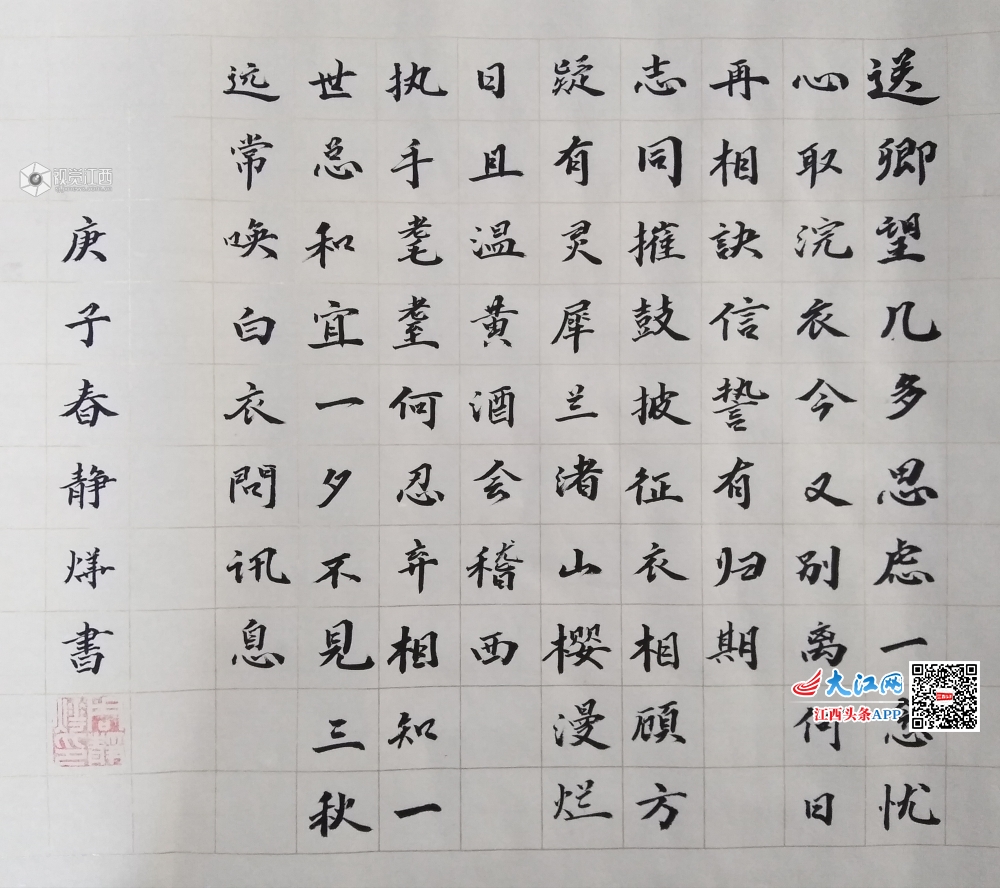 送卿望几多思虑一
忧
心取浣衣今又别离何日
再相訣信誓有归期
志同摧鼓披征衣相顾方
疑有灵犀兰渚山樱漫烂
日且温黄酒会稽西
执手耄耋何忍弃相知一
世总和宜一夕不見三秋
远常唤白衣問訊息
庚子春静烨書
视觉江西
大江网
江西头条APP